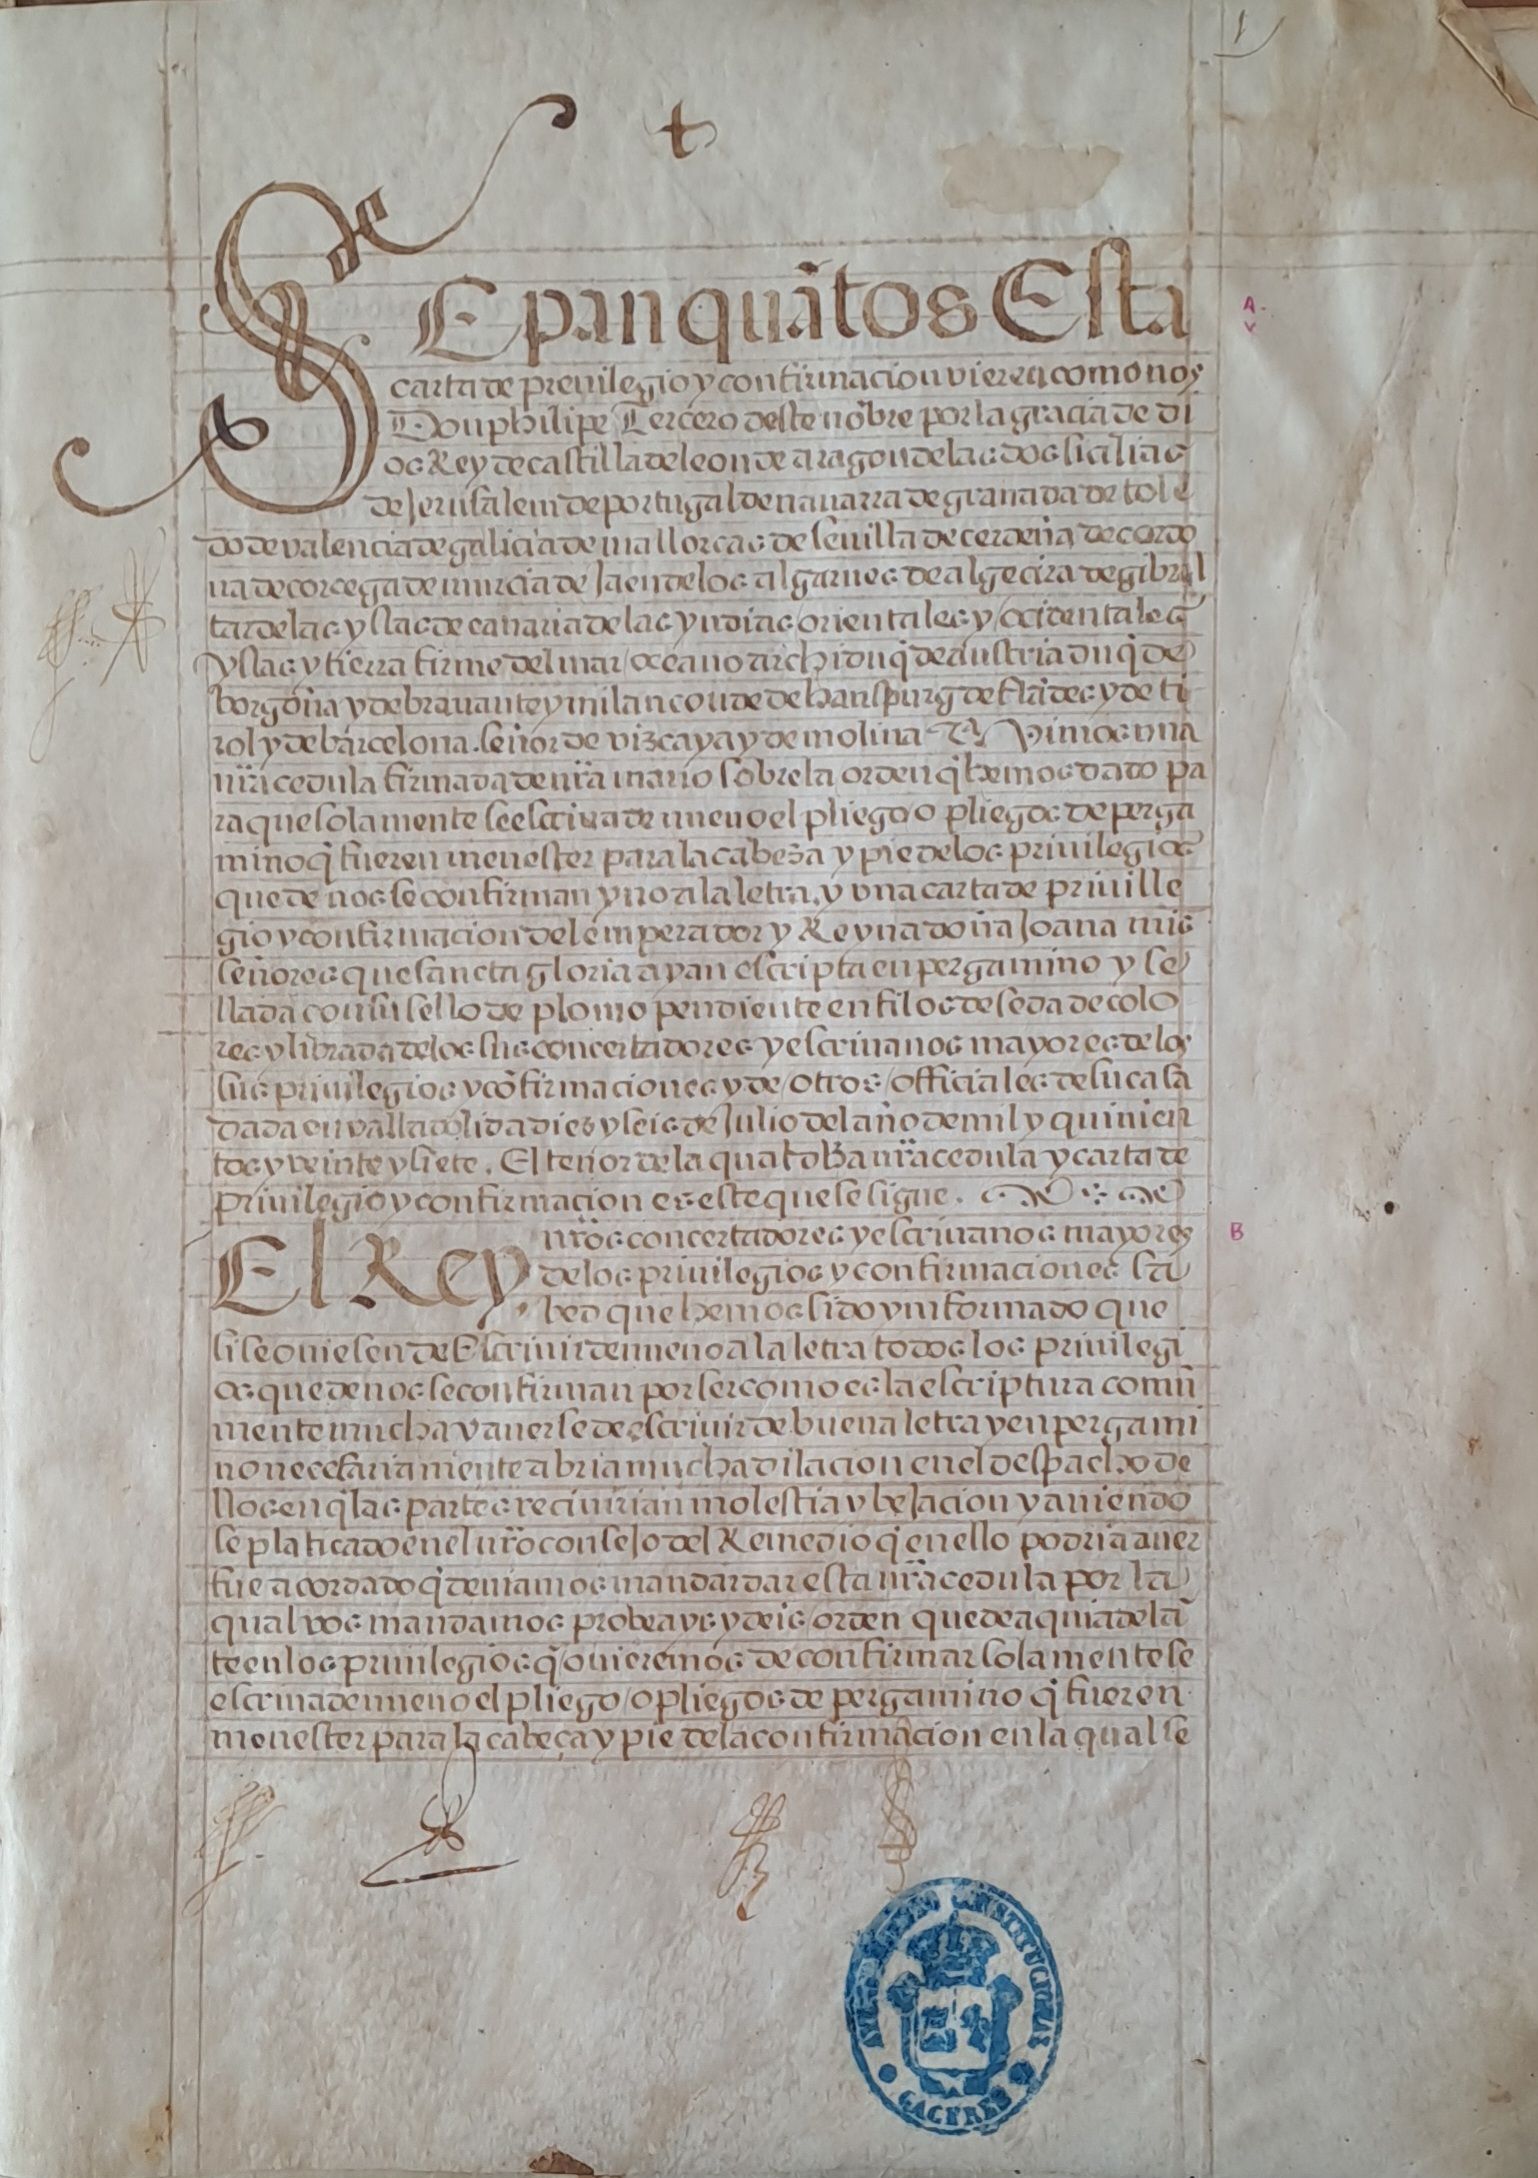 1
SEpan quãtos Esta
carta de preuilegio y confirmacion vieren como nos
Don philipe Tercero deste nõbre por la gracia de di
os Rey de castilla de leon de aragon de las dos sicilias
de Jerusalem de portugal de nauarra de granada de tole
do de valencia de galicia de mallorcas de seuilla de cerdeña de cordo
ua de corcega de murcia de Jaen de los algarues de algecira de gibral
tar de las yslas de canaria de las yndias orientales y ocidentales
yslas y tierra firme del mar oceano archiduq̃ de austria duq̃ de
borgoña y de brauante y milan conde de hauspurg de flãdes y de ti
rol y de barcelona. señor de vizcaya y de molina &c Vimos una
nr̃a cedula firmada de nr̃a mano sobre la orden q̃ hemos dado pa
ra que solamente se escriua de nueuo el pliego o pliegos de perga
mino q̃ fueren menester para la cabeza y pie de los priuilegios
que de nos se confirman y no a la letra, y vna carta de priuille
gio y confirmacion del emperador y Reyna doña Joana mis
señores que sancta gloria ayan escripta en pergamino y se
llada con su sello de plomo pendiente en filos de seda de colo
res y librada de los sus concertadores y escriuanos mayores de los
sus priuilegios y cõfirmaciones y de otros officiales de su casa
dada en valladolid a dies y seis de Julio del año de mil y quinien
tos y veinte y siete. El tenor de la qual dħa nr̃a cedula y carta de
priuilegio y confirmacion es este que se sigue.
El Rey,
nr̃os concertadores y escriuanos mayores
de los priuilegios y confirmaciones sa
bed que hemos sido ynformado que
si se ouiesen de Escriuir de nueuo a la letra todos los priuilegi
os que de nos se confirman por ser como es la escriptura comũ
mente mucha y auerse de escriuir de buena letra y en pergami
no necesariamente abria mucha dilacion en el despacho de
llos en q̃ las partes reciuirian molestia y beJacion y auiendo
se platicado en el nr̃o conseJo del Remedio q̃ en ello podria auer
fue acordado q̃ deuiamos mandar dar esta nr̃a cedula por la
qual vos mandamos probeays y deis orden que de aqui adelã
te en los priuilegios q̃ ouieremos de confirmar solamente se
escriua de nueuo el pliego o pliegos de pergamino q̃ fueren
menester para la cabeça y pie de la confirmacion en la qual se
A
B
CACERES